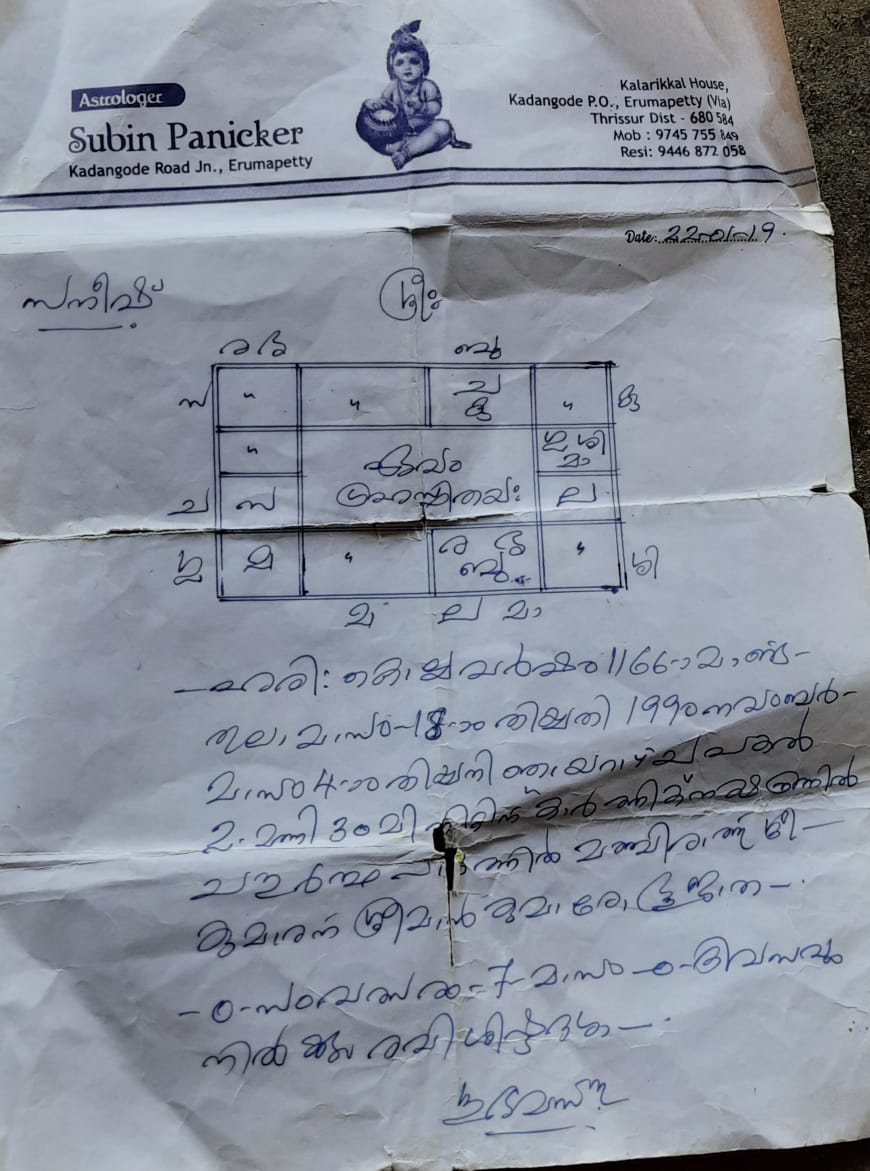 Astrologer
Subin Panicker
Kadangode Road Jn., Erumapetty
Kalarikkal House,
Kadangode P.O., Erumapetty (Via)
Thrissur Dist - 680 584
Mob : 9745 755 849
Resi: 9446 872 058
Date: 22-01-19
സനീഷ്
ശ്രീഃ
ര ഭ ബു
സ ച കു കു
ഗു ശി മാ
ഏവം
ഗ്രഹസ്ഥിതയഃ
ച സ ല
ഗു മ ര ഭ ബു ശി
മ ല മാ
ഹരി: കൊല്ലവർഷം 1166-ാമാണ്ട
തുലാമാസം-18-ാം തിയ്യതി 1990 നവംബർ-
മാസം 4-ാം തിയ്യതി ഞായറാഴ്ച പകൽ
2. മണി 30 മി കാർത്തികനക്ഷത്രത്തിൽ
കുമാരന് ശ്രീമാൻ
-0-സംവത്സരം-7-മാസം-0-ദിവസവും
നിൽക്കും രവി ശിഷ്ടദശ-
ശുഭമസ്തു